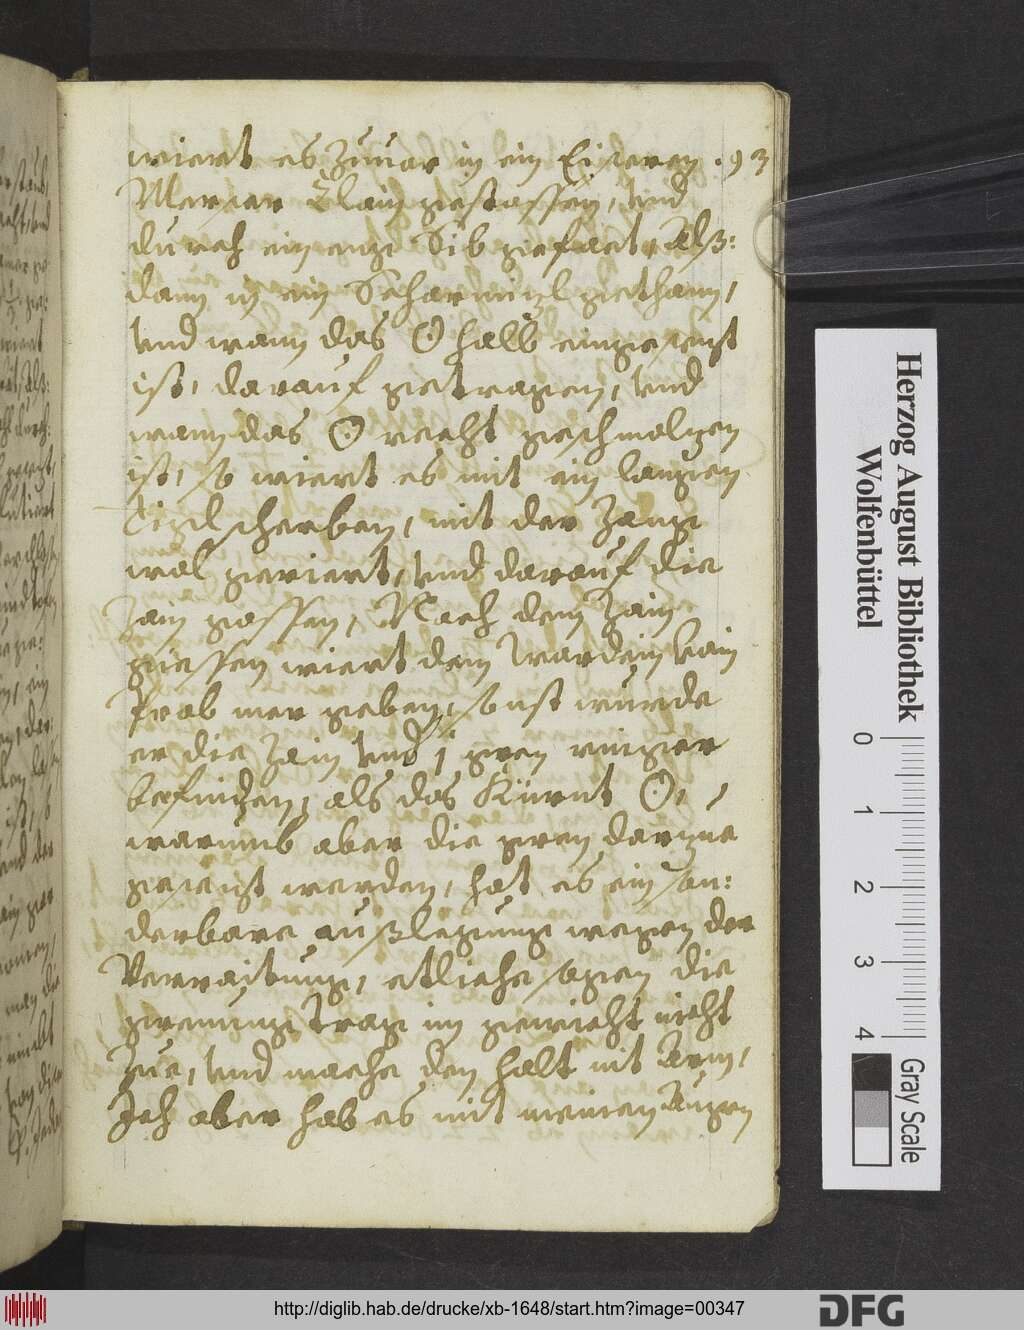 wiert es zuuor in ein Eißeren . 93
Merser klain gestossen, vnd
durch ein enge Sib gefaet, Alß:
dann in ein Scharmizl gethann,
vnd wann das ☉ halb eingesenst
ist, darauf getragen, vnd
wann das ☉ recht geschmolzen
ist, so wiert es mit ein langen
Tigl scherben, mit der Zange
wol geriert, vnd darauf die
Zain gossen, Nach dem Zain
giessen wiert dem Wardein kain
Prob mer geben, sonst wurde
er die Zain vmb j gren ringer
befinden, als das Kürnt ☉,
warumb aber die gren darzue
gesenst werden, hat es ein son:
derbare außlegung wegen der
Verraitung, etliche sagen die
gremung trag im gewicht nicht
zue, vnd mache den halt nit Arm,
Ich aber hab es mit meinen Augen
Herzog August Bibliothek
Wolfenbüttel
0 1 2 3 4
Gray Scale
http://diglib.hab.de/drucke/xb-1648/start.htm?image=00347
DFG